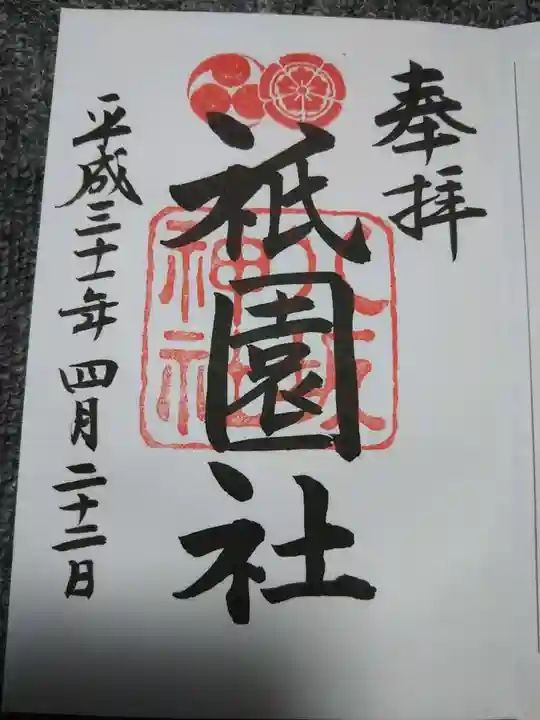 奉拝
祇園社
八坂神社
平成三十一年四月二十二日